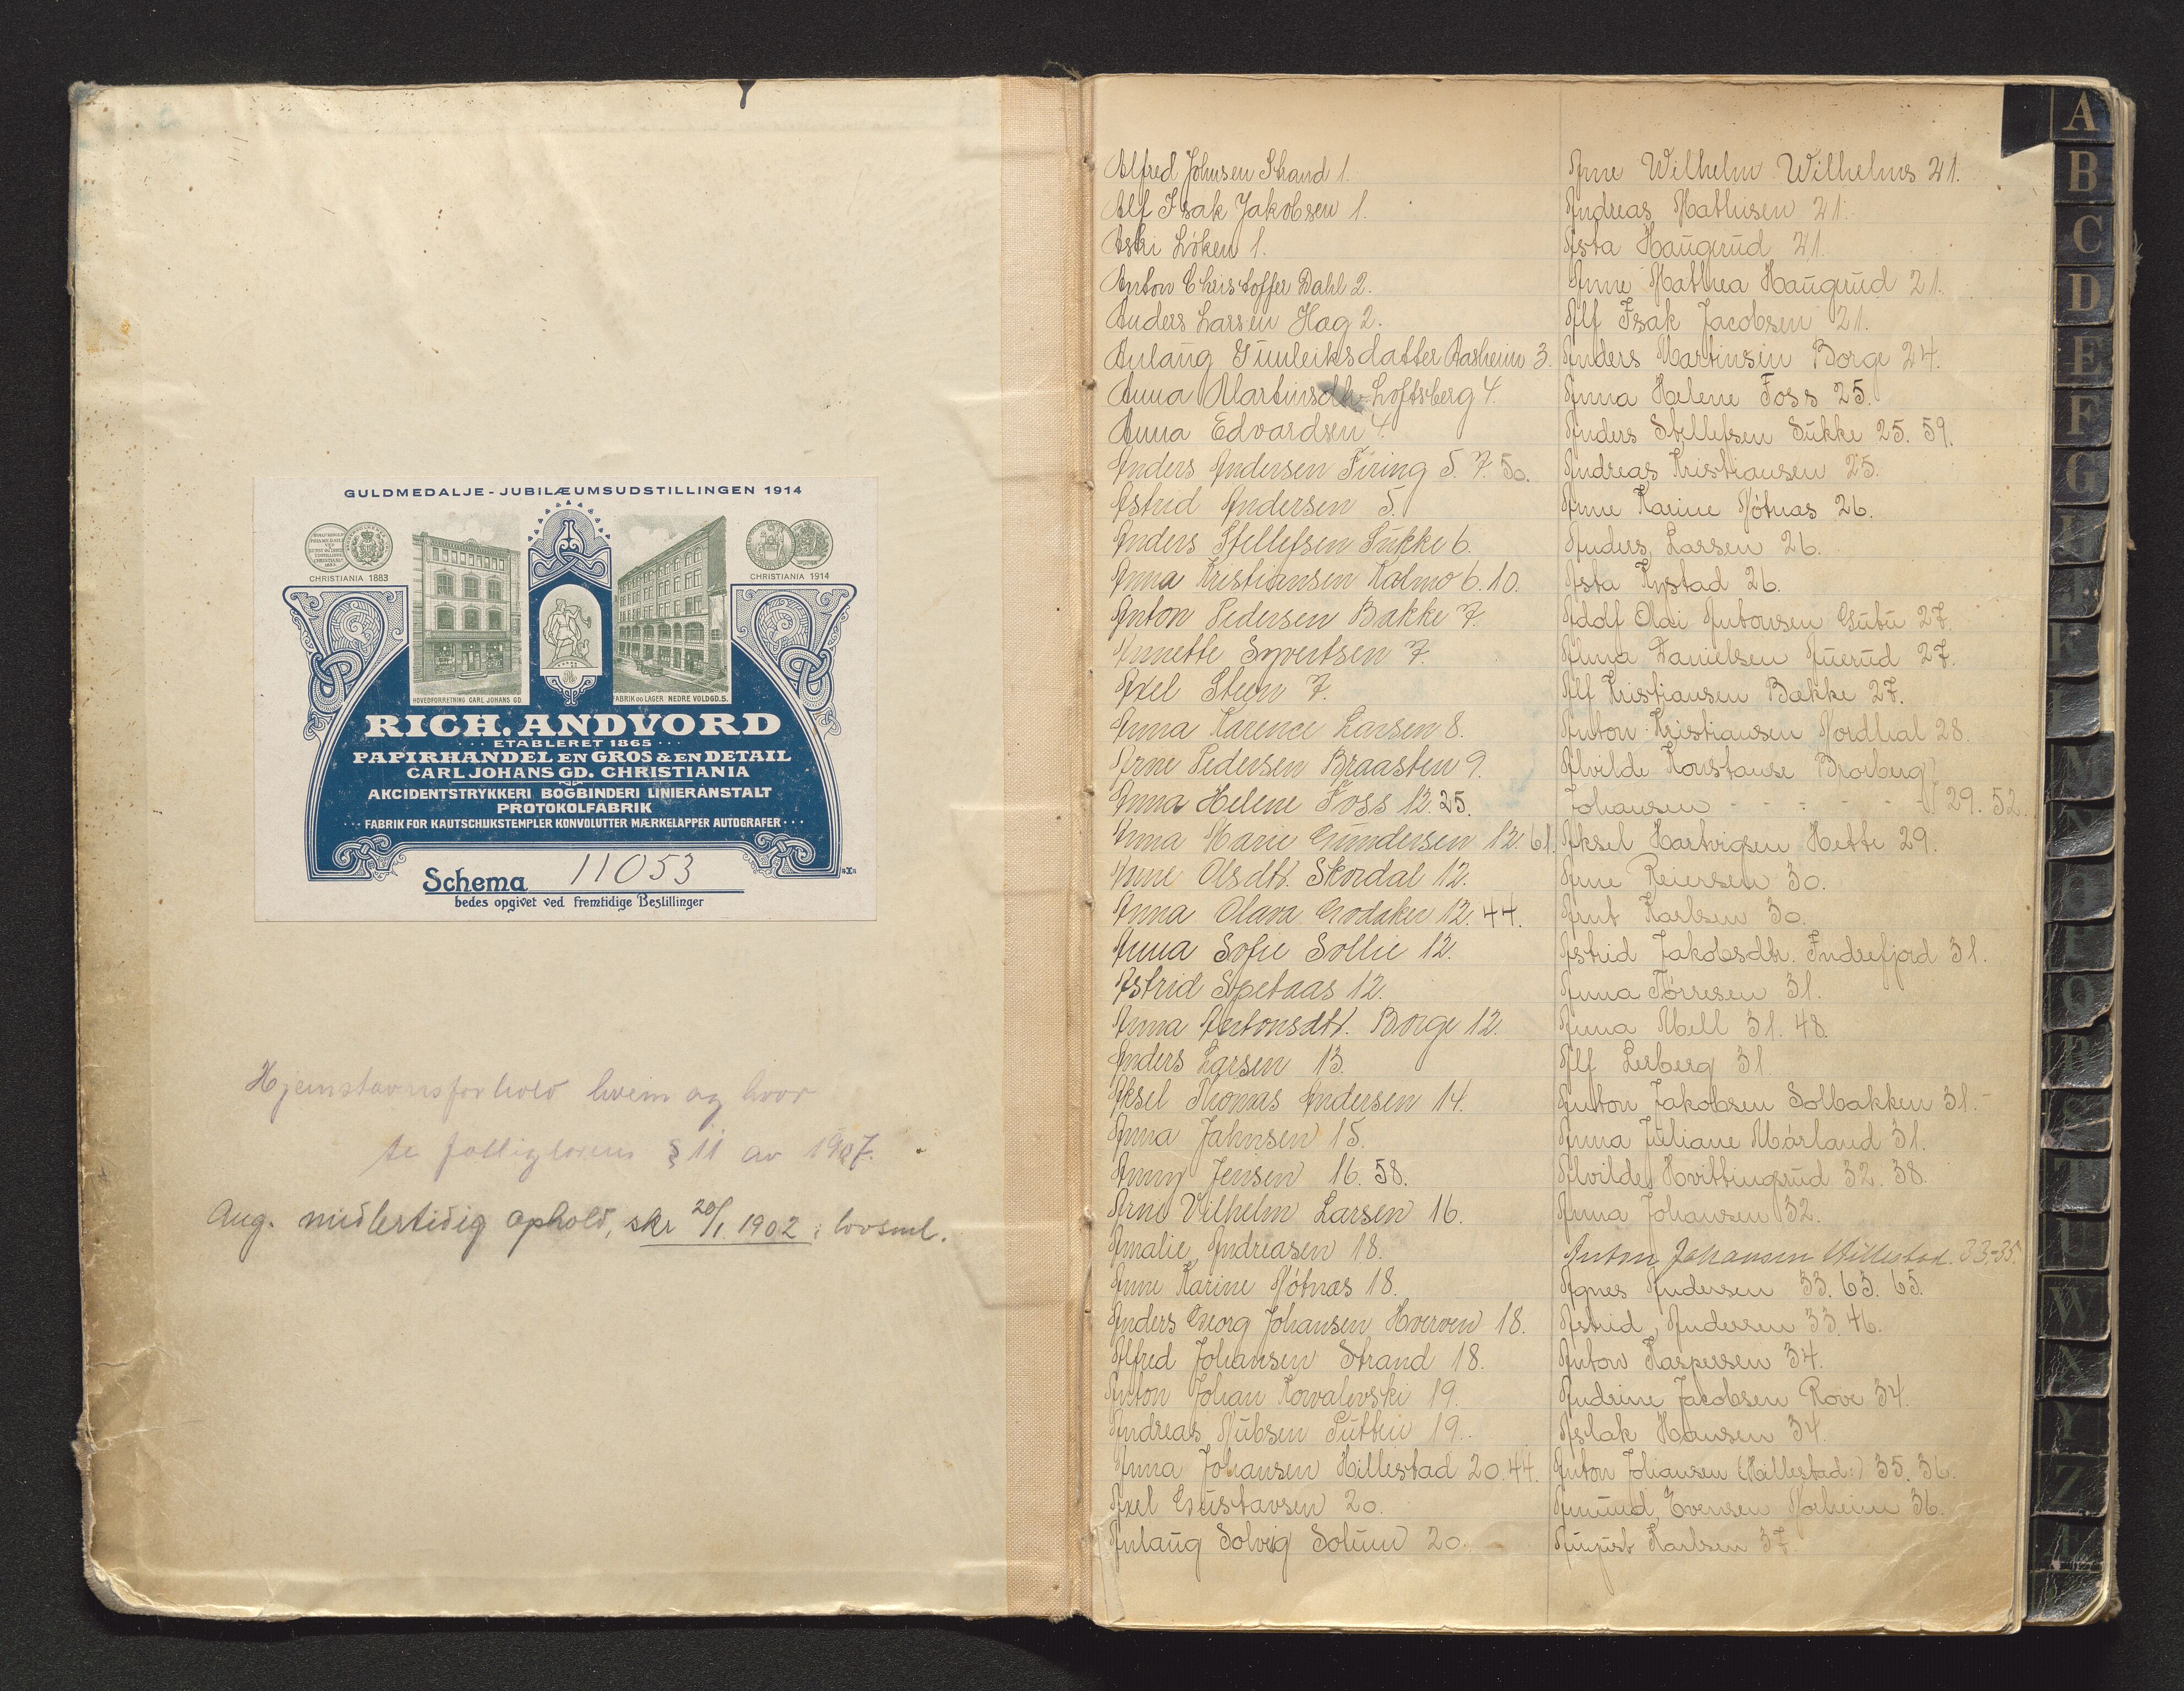 GULDMEDALJE-JUBILÆUMSUDSTILLINGEN 1914
CHRISTIANIA 1883
CHRISTIANIA 1914
HOVEDFORRETNING CARL JOHANS GD.
FABRIK OG LAGER NEDRE VOLDGD. 5.
RICH. ANDVORD
ETABLERET 1865
PAPIRHANDEL EN GROS & EN DETAIL
CARL JOHANS GD. CHRISTIANIA
AKCIDENTSTRYKKERI BOGBINDERI LINIERANSTALT
PROTOKOLFABRIK
FABRIK FOR KAUTSCHUKSTEMPLER KONVOLUTTER MÆRKELAPPER AUTOGRAFER
Schema 11053
bedes opgivet ved fremtidige Bestillinger
Hjemstavnsforhold hvem og hvor
se fattiglovens § 11 av 1907.
Ang. midlertidig ophold, skr 20/1 1902 i lovsml.
Alfred Johnsen Strand 1.
Alf Isak Jakobsen 1.
Aski Löken 1.
Anton Christoffer Dahl 2.
Anders Larsen Hag 2.
Anlaug Gunleiksdatter Aasheim 3.
Anna Martinsdtr Loftsberg 4.
Anna Edvardsen 4.
Anders Andersen Firing 5. 7. 50.
Astrid Andersen 5.
Anders Stellefsen Sukke 6.
Anna Kristiansen Kalmo 6. 10.
Anton Pedersen Bakke 7.
Annette Syvertsen 7.
Axel Steen 7.
Anna Karence Larsen 8.
Arne Pedersen Braasten 9.
Anna Helene Foss 12. 25.
Anna Marie Gundersen 12. 61.
Anne Olsdtr. Skordal 12.
Anna Olava Grodaker 12. 44.
Anna Sofie Sollie 12.
Astrid Spetaas 12.
Anna Antonsdtr. Borge 12.
Anders Larsen 13.
Aksel Thomas Andersen 14.
Anna Jahnsen 15.
Anny Jensen 16. 58.
Arne Vilhelm Larsen 16.
Amalie Andreasen 18.
Anne Karine Nótnas 18.
Anders Georg Johansen Hverven 18.
Alfred Johansen Strand 18.
Anton Johan Kowalevski 19.
Andreas Nubsen Putten 19.
Anna Johansen Hillestad 20. 44.
Axel Gustavsen 20.
Anlaug Solveig Solum 20.
Arne Wilhelm Wilhelms 21.
Andreas Mathisen 21.
Asta Haugrud 21.
Anne Mathea Haugrud 21.
Alf Isak Jacobsen 21.
Anders Martinsen Borge 24.
Anna Helene Foss 25.
Anders Stellefsen Sukke 25. 59.
Andreas Kristiansen 25.
Anne Karine Nótnas 26.
Anders Larsen 26.
Asta Rystad 26.
Adolf Olai Antonsen Gutu 27.
Anna Danielsen Auerud 27.
Alf Kristiansen Bakke 27.
Anton Kristiansen Nordhal 28.
Alvilde Konstanse Broberg
Johansen - - - - - - 29. 52.
Aksel Hartvigsen Hette 29.
Arne Reiersen 30.
Arnt Karlsen 30.
Astrid Jakobsdtr. Indrefjord 31.
Anna Tórresen 31.
Anna Mell 31. 48.
Alf Lerberg 31.
Anton Jakobsen Solbakken 31.
Anna Juliane Mórland 31.
Alvilde Hvittingrud 32. 38.
Anna Johansen 32.
Anton Johansen Hillestad. 33-35.
Agnes Andersen 33. 63. 65.
Astrid Andersen 33. 46.
Anton Kaspersen 34.
Andrine Jacobsen Rove 34.
Aslak Hansen 34.
Anton Johansen (Hillestad:) 35. 36.
Amund Evensen Norheim 36.
August Karlsen 37.
A
B
C
D
E
F
G
K
M
N
O
P
Q
R
S
T
U
W
X
Y
Z